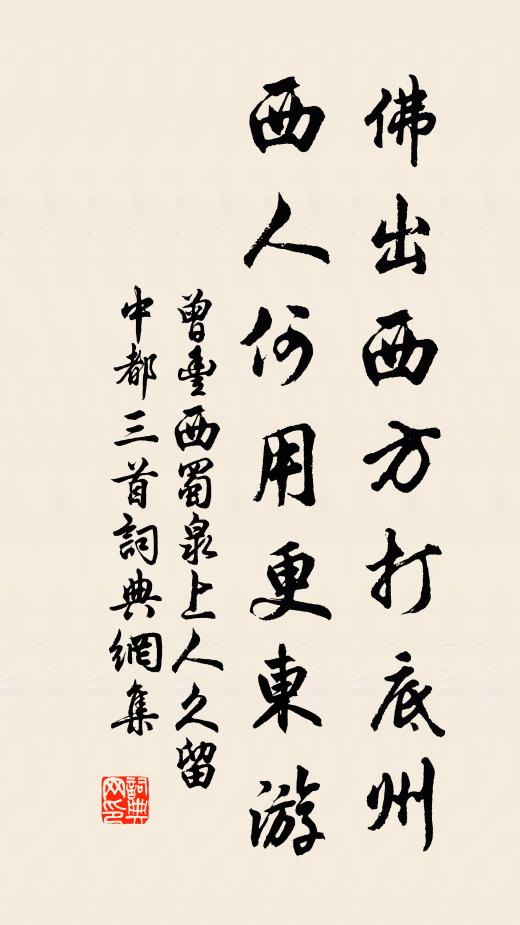 佛出西方打底州
西人何用更東游
曾豊西蜀泉上人久留
中都三首詞典網集
詞典
网印